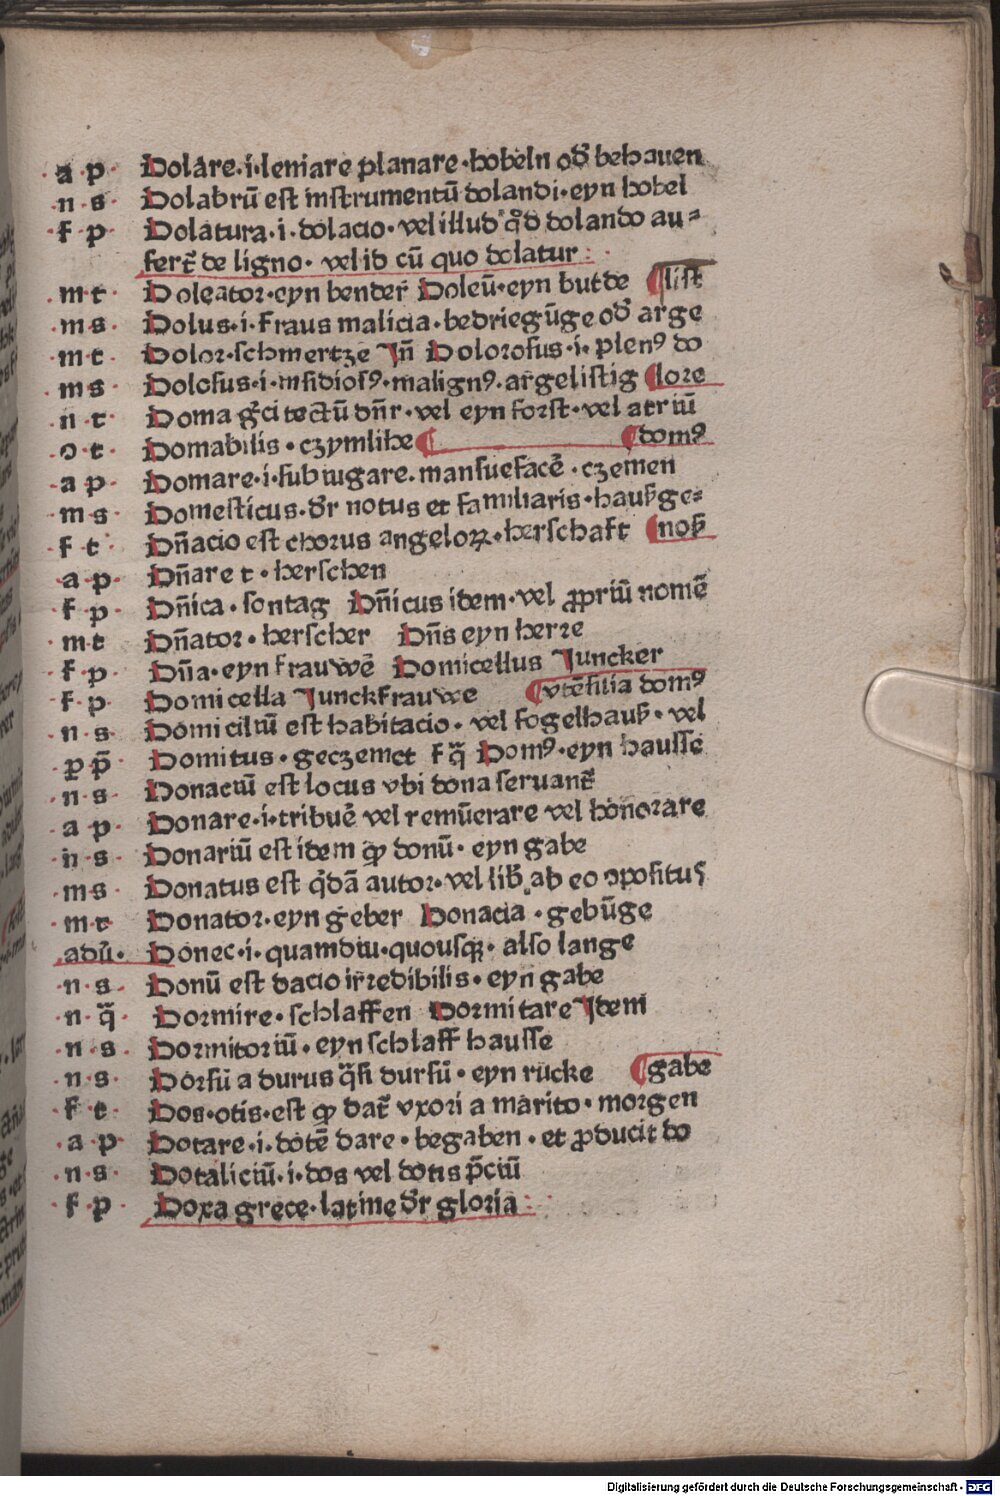 a p Dolare·i·leniare planare·hobeln od̕ behauen
n s Dolabrū est instrumentū dolandi·eyn hobel
f p Dolatura·i·dolacio·vel illud qd̕ dolando au⸗
fert̕ de ligno·vel id cū quo dolatur
m t Doleator·eyn bender Doleū·eyn butde ¶list
m s Dolus·i·fraus malicia·bedriegūge od̕ arge
m t Dolor·schmertze Jn̄ Dolorosus·i·plenꝰ do
m s Dolosus·i·insidiosꝰ·malignꝰ·argelistig ¶lore
n t Doma gr̄ci tectū dn̄r·vel eyn forst·vel atriū
o t Domabilis·czymlihe ¶ ¶domꝰ
a p Domare·i·subiugare·mansuefacē·czemen
m s Domesticus·dr̄ notus et familiaris·hauſzge⸗
f t Dn̄acio est chorus angeloꝝ·herschaft ¶noſz
a p Dn̄are t·herschen
f p Dn̄ica·sontag Dn̄icus idem·vel ꝓpriū nomē
m t Dn̄ator·herscher Dn̄s eyn herre
f p Dn̄a·eyn frauwē Domicellus Juncker
f p Domicella Junckfrauwe ¶vtēsilia domꝰ
n s Domiciliū est habitacio·vel fogelhauſz·vel
p̄ p̄ Domitus·geczemet f q̄ Domꝰ·eyn hausse
n s Donaciū est locus vbi dona seruant̕
a p Donare·i·tribuē vel remūerare vel honorare
n s Donariū est idem qp̄ donū·eyn gabe
m s Donatus est qd̄ā autor·vel lib̕ ab eo ꝯpositus
m t Donator·eyn geber Donacia·gebūge
adū· Donec·i·quamdiu·quousqꝫ·also lange
n s Donū est dacio irredibilis·eyn gabe
n q̄ Dormire·schlaffen Dormitare Jdem
n s Dormitoriū·eyn schlaff hausse
n s Dorsū a durus q̄si dursū·eyn rucke ¶gabe
f t Dos·otis·est qp̄ dat̕ vxori a marito·morgen
a p Dotare·i·dotē dare·begaben·et ꝓducit do
n s Dotaliciū·i·dos vel dotis p̄ciū
f p Doxa grece·latine dr̄ gloria
Digitalisierung gefördert durch die Deutsche Forschungsgemeinschaft - DFG